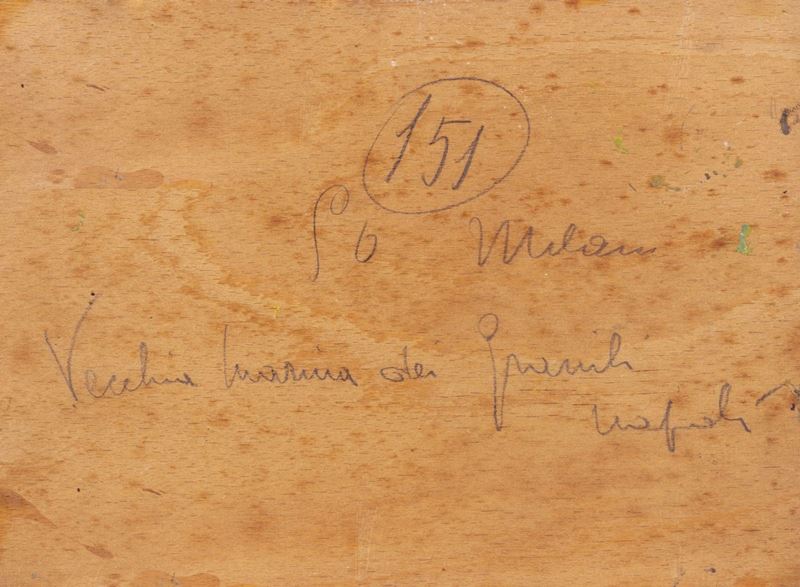 151
Milan
Vecchia Marina dei Granili
Napoli